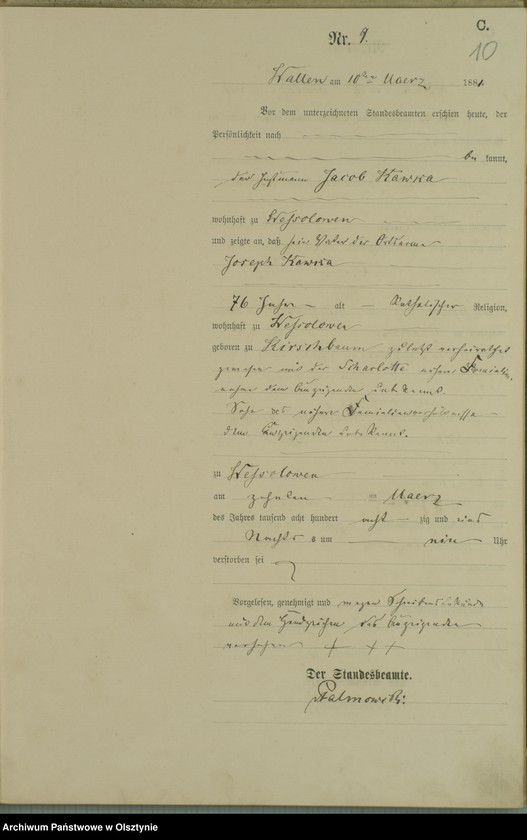 C.
Nr. 9.
10
Wallen am 10ten Maerz 1881.
Vor dem unterzeichneten Standesbeamten erschien heute, der
Persönlichkeit nach
be kannt,
der Instmann Jacob Kawka
wohnhaft zu Wessolowen
und zeigte an, daß sein Vater der Ortsarme
Joseph Kawka
76 Jahre alt Katholischer Religion,
wohnhaft zu Wessolowen
geboren zu Kirschbaum zuletzt verheirathet
gewesen mit der Scharlotte
dem Anzeigenden unbekannt.
Sohn des
dem Anzeigenden unbekannt.
zu Wessolowen
am zehnten Maerz
des Jahres tausend acht hundert acht zig und eins
Nachts um ein Uhr
verstorben sei
Vorgelesen, genehmigt und wegen Schreibensunkunde
mit dem Handzeichen des Anzeigenden
versehen + + +
Der Standesbeamte.
Palmowski.
Archiwum Państwowe w Olsztynie